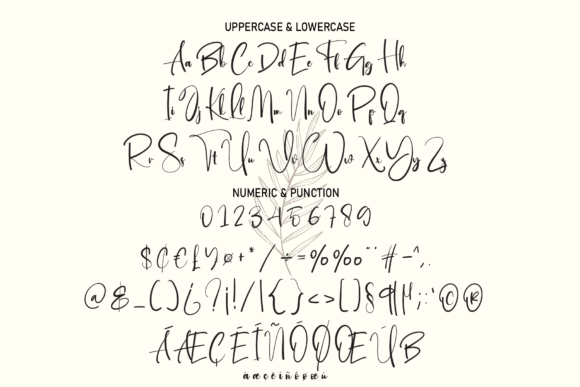 UPPERCASE & LOWERCASE
Aa Bb Cc Dd Ee Ff Gg Hh
Ii Jj Kk Ll Mm Nn Oo Pp Qq
Rr Ss Tt Uu Vv Ww Xx Yy Zz
NUMERIC & PUNCTION
0 1 2 3 4 5 6 7 8 9
$ ¢ € £ ¥ ø + * / ÷ = % ‰ ¨ # – ^ , .
@ & _ ( ) ¿ ? ¡ ! / \ | { } < > [ ] § ¶ ; : ' © ®
Á Æ Ç É Í Ñ Ó Ø Œ Ú ß
á æ ç é í ñ ó ø œ ú